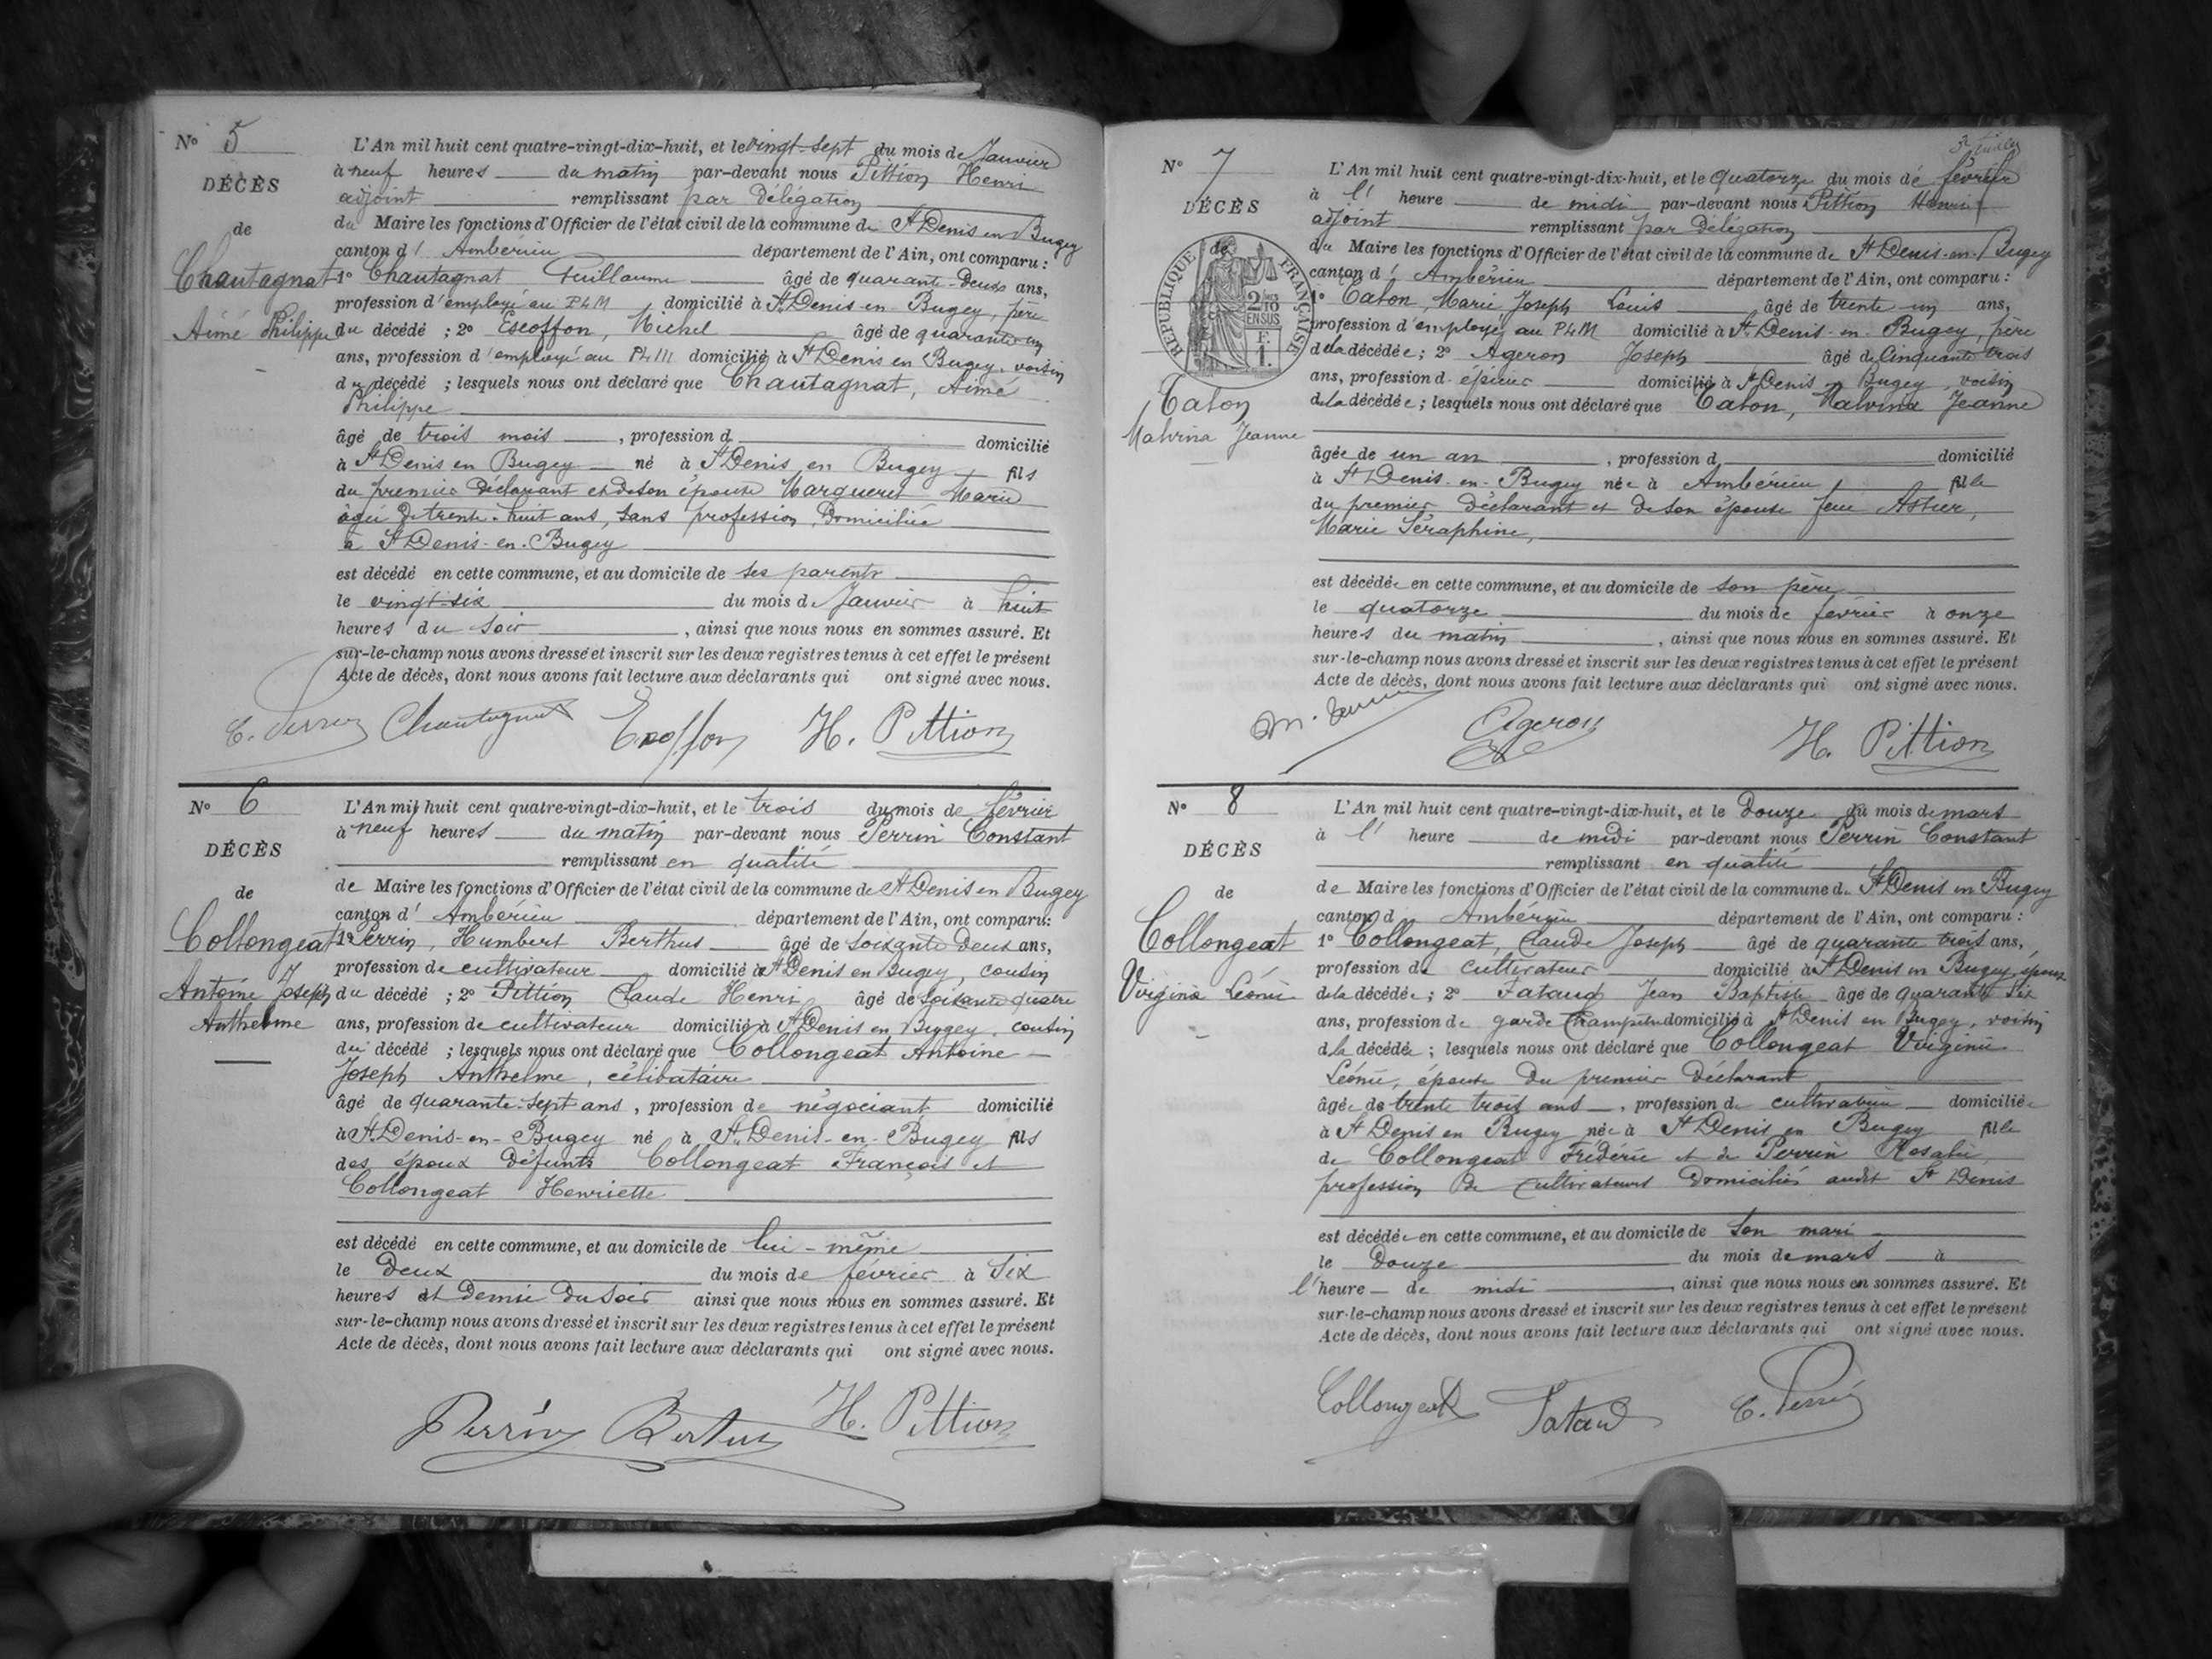 N° 5
DÉCÈS
de
Chautagnat
Aimé Philippe
L'An mil huit cent quatre-vingt-dix-huit, et le vingt-sept du mois de Janvier
à neuf heures du matin par-devant nous Pittion Henri
adjoint remplissant par délégation
du Maire les fonctions d'Officier de l'état civil de la commune de St Denis en Bugey
canton d' Ambérieu département de l'Ain, ont comparu :
1° Chautagnat Guillaume âgé de quarante-deux ans,
profession d'employé au PLM domicilié à St Denis en Bugey, père
du décédé ; 2° Escoffon, Michel âgé de quarante un
ans, profession d'employé au PLM domicilié à St Denis en Bugey, voisin
du décédé ; lesquels nous ont déclaré que Chautagnat, Aimé
Philippe
âgé de trois mois , profession d domicilié
à St Denis en Bugey né à St Denis en Bugey fils
du premier déclarant et de son épouse Margueret Marie
âgée de trente-huit ans, sans profession, domiciliée
à St Denis-en-Bugey
est décédé en cette commune, et au domicile de ses parents
le vingt-six du mois de Janvier à huit
heures du soir , ainsi que nous nous en sommes assuré. Et
sur-le-champ nous avons dressé et inscrit sur les deux registres tenus à cet effet le présent
Acte de décès, dont nous avons fait lecture aux déclarants qui ont signé avec nous.
C. Perrin Chautagnat Escoffon H. Pittion
N° 6
DÉCÈS
de
Collongeat
Antoine Joseph
Anthelme
L'An mil huit cent quatre-vingt-dix-huit, et le trois du mois de février
à neuf heures du matin par-devant nous Perrin Constant
remplissant en qualité
de Maire les fonctions d'Officier de l'état civil de la commune de St Denis en Bugey
canton d' Ambérieu département de l'Ain, ont comparu:
1° Perrin, Humbert Berthus âgé de soixante deux ans,
profession de cultivateur domicilié à St Denis en Bugey, cousin
du décédé ; 2° Pittion Claude Henri âgé de soixante quatre
ans, profession de cultivateur domicilié à St Denis en Bugey, cousin
du décédé ; lesquels nous ont déclaré que Collongeat Antoine
Joseph Anthelme, célibataire
âgé de quarante-sept ans , profession de négociant domicilié
à St Denis-en-Bugey né à St Denis-en-Bugey fils
des époux défunts Collongeat François et
Collongeat Henriette
est décédé en cette commune, et au domicile de lui-même
le deux du mois de février à six
heures et demie du soir ainsi que nous nous en sommes assuré. Et
sur-le-champ nous avons dressé et inscrit sur les deux registres tenus à cet effet le présent
Acte de décès, dont nous avons fait lecture aux déclarants qui ont signé avec nous.
Perrin Bertus H. Pittion
N° 7
DÉCÈS
de
RÉPUBLIQUE FRANÇAISE
2/10 EN SUS
F. 1.
Talon
Malvina Jeanne
L'An mil huit cent quatre-vingt-dix-huit, et le quatorze du mois de février
à l' heure de midi par-devant nous Pittion Henri
adjoint remplissant par délégation
du Maire les fonctions d'Officier de l'état civil de la commune de St Denis-en-Bugey
canton d' Ambérieu département de l'Ain, ont comparu :
1° Talon, Marie Joseph Louis âgé de trente un ans,
profession d'employé au PLM domicilié à St Denis-en-Bugey, père
de la décédée ; 2° Ageron Joseph âgé de cinquante trois
ans, profession d'épicier domicilié à St Denis en Bugey, voisin
de la décédée ; lesquels nous ont déclaré que Talon, Malvina Jeanne
âgée de un an , profession d domicilié
à St Denis-en-Bugey née à Ambérieu fille
du premier déclarant et de son épouse feue Astier,
Marie Séraphine,
est décédée en cette commune, et au domicile de son père
le quatorze du mois de février à onze
heures du matin , ainsi que nous nous en sommes assuré. Et
sur-le-champ nous avons dressé et inscrit sur les deux registres tenus à cet effet le présent
Acte de décès, dont nous avons fait lecture aux déclarants qui ont signé avec nous.
Ageron H. Pittion
N° 8
DÉCÈS
de
Collongeat
Virginie Léonie
L'An mil huit cent quatre-vingt-dix-huit, et le douze du mois de mars
à l' heure de midi par-devant nous Perrin Constant
remplissant en qualité
de Maire les fonctions d'Officier de l'état civil de la commune de St Denis en Bugey
canton d Ambérieu département de l'Ain, ont comparu :
1° Collongeat, Claude Joseph âgé de quarante trois ans,
profession de cultivateur domicilié à St Denis en Bugey, époux
de la décédée ; 2° Fataud Jean Baptiste âgé de quarante six
ans, profession de garde Champêtre domicilié à St Denis en Bugey, voisin
de la décédée ; lesquels nous ont déclaré que Collongeat Virginie
Léonie, épouse du premier déclarant
âgée de trente trois ans , profession de cultivatrice domiciliée
à St Denis en Bugey née à St Denis en Bugey fille
de Collongeat Frédéric et de Perrin Rosalie
profession de cultivateurs domiciliés audit St Denis
est décédée en cette commune, et au domicile de son mari
le douze du mois de mars à
l'heure de midi , ainsi que nous nous en sommes assuré. Et
sur-le-champ nous avons dressé et inscrit sur les deux registres tenus à cet effet le présent
Acte de décès, dont nous avons fait lecture aux déclarants qui ont signé avec nous.
Collongeat Fataud C. Perrin